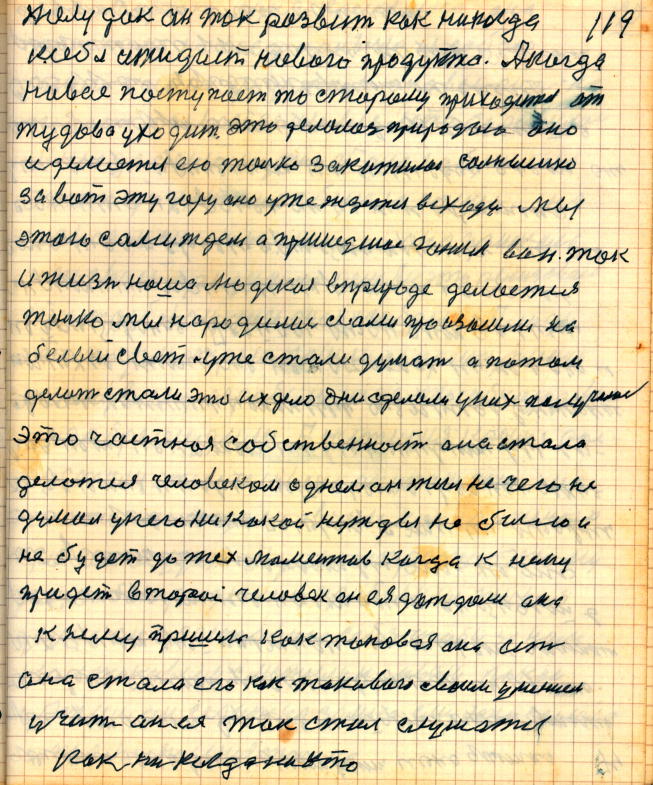 119
желудак ан так развит как никогда
к себя ожидает нового продукта. А когда
новае поступает то старому приходится от
тудова уходит. это делалаз природаю оно
и делается ею только закатилас солнышко
за вот эту гору оно уже ждется всходу мы
этого сами ждем а пришедшае гоним вон. так
и жизн наша людская в природе делается
только мы народилис с вами произошли на
белый свет и уже стали думат а потом
делат стали это их дело они сделали у них получилос
это частная собственност она стала
делатся человеком одном ан жил не чего не
думал у него ни какой нужды не было и
не будет до тех моментав когда к нему
придет второй человек ан ея дождали она
к нему пришла как таковая она
она стала его как такового своим умением
учит ан ея так стал слушатся
как ни когда никто